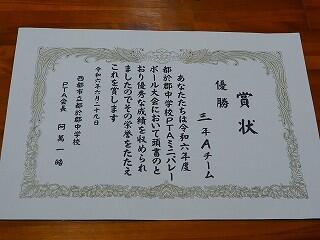 賞状
優勝 三年Aチーム
あなたたちは令和六年度
都於郡中学校PTAミニバレー
ボール大会において頭書のと
おり優秀な成績を収められ
ましたのでその栄誉をたたえ
これを賞します
令和六年六月二十九日
西都市立都於郡中学校
PTA会長 阿萬一晧